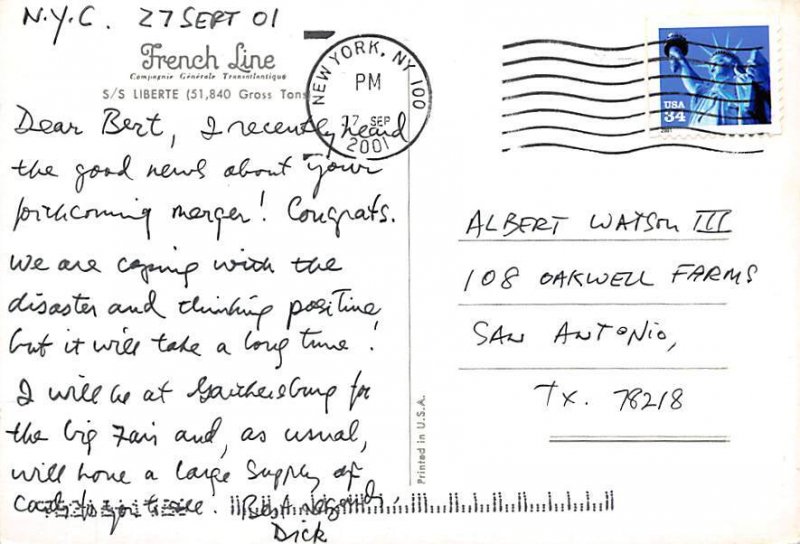 N.Y.C. 27 SEPT 01
French Line
Compagnie Générale Transatlantique
S/S LIBERTE (51,840 Gross Tons
Dear Bert, I recently heard
the good news about your
forthcoming merger! Congrats.
We are coping with the
disaster and thinking positive
but it will take a long time!
I will be at Gaithersburg for
the big Fair and, as usual,
will have a large supply of
cards for you to see. Best Regards,
Dick
NEW YORK, NY 100
PM
27 SEP
2001
USA
34
2001
ALBERT WATSON III
108 OAKWELL FARMS
SAN ANTONIO,
TX. 78218
Printed in U.S.A.